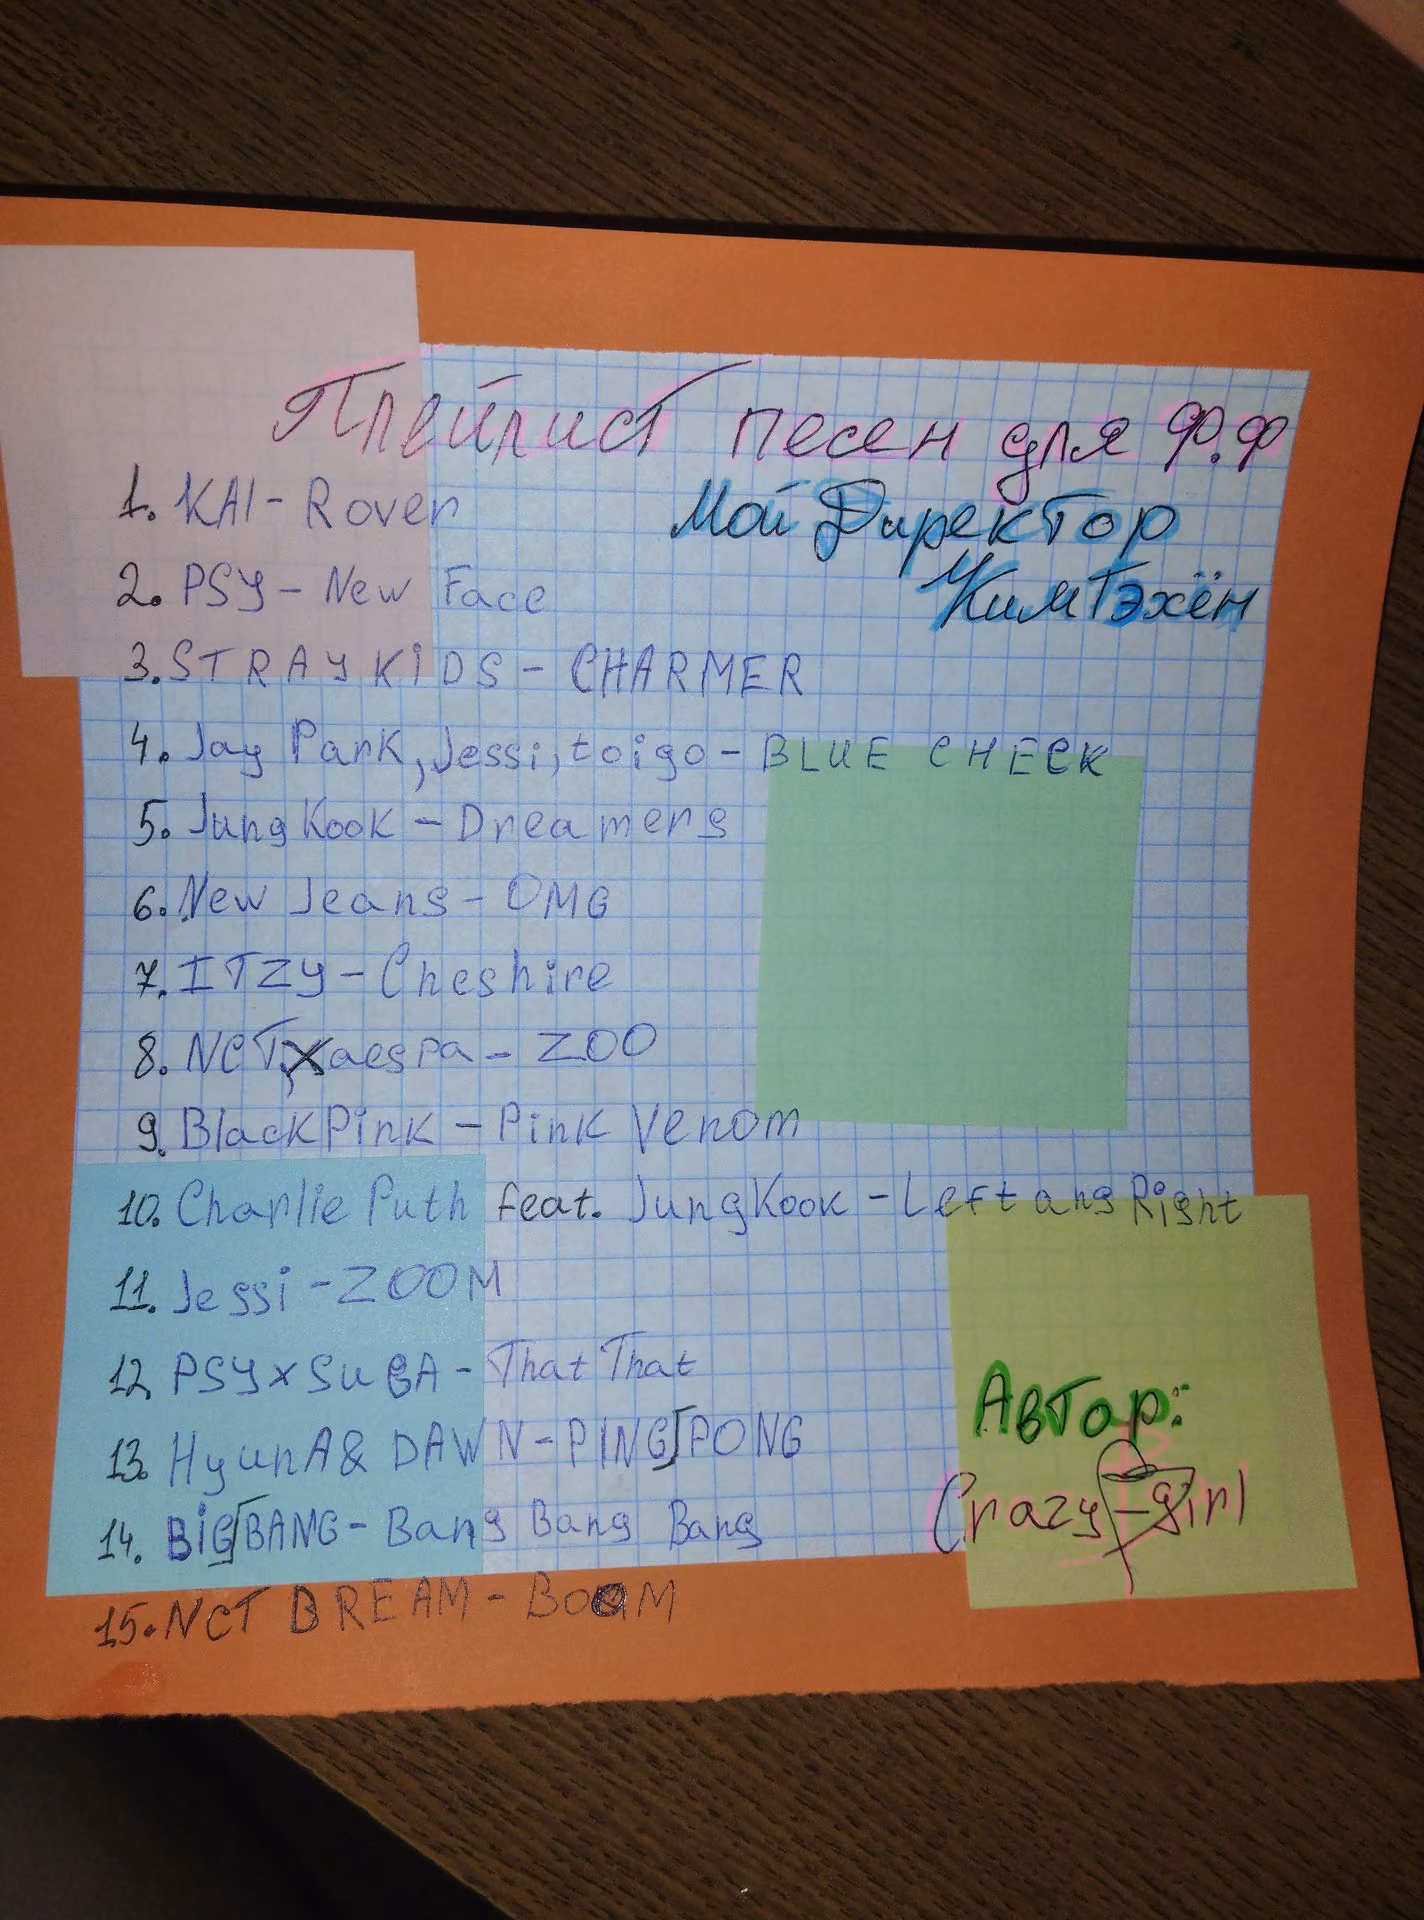 Плейлист песен для Ф.Ф
Мой Директор
Ким Тэхён
1. KAI - Rover
2. PSY - New Face
3. STRAY KIDS - CHARMER
4. Jay Park, Jessi, toigo - BLUE CHECK
5. Jung Kook - Dreamers
6. New Jeans - OMG
7. ITZY - Cheshire
8. NCT, X aespa - ZOO
9. BlackPink - Pink Venom
10. Charlie Puth feat. JungKook - Left ang Right
11. Jessi - ZOOM
12. PSY x SUGA - That That
13. HyunA & DAWN - PING PONG
14. BIG BANG - Bang Bang Bang
15. NCT DREAM - BOOM
Автор:
Crazy-girl